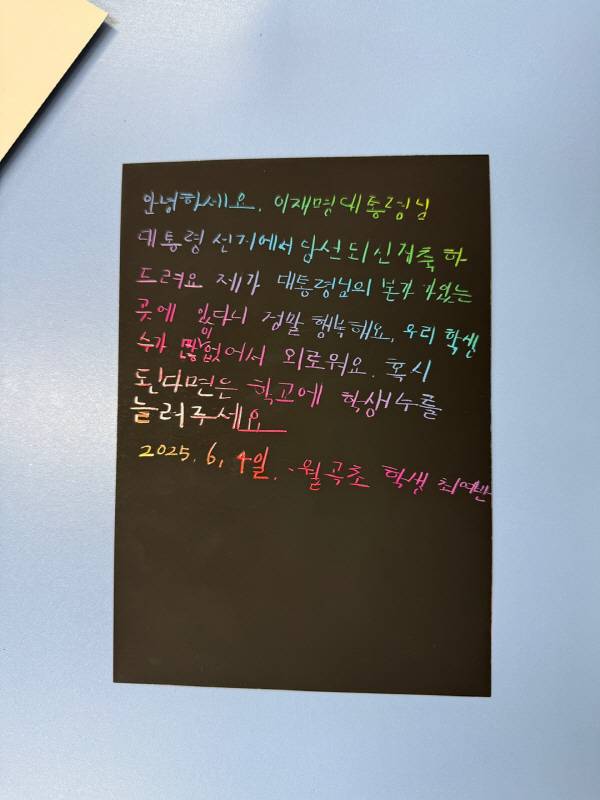 안녕하세요. 이재명대통령님
대통령 선거에서 당선되신걸축하
드려요 제가 대통령님의 본가가있는
곳에 있다니 정말 행복해요, 우리 학생
수가 많이없어서 외로워요. 혹시
된다면은 학교에 학생수를
늘려주세요
2025. 6. 4일. -월곡초 학생